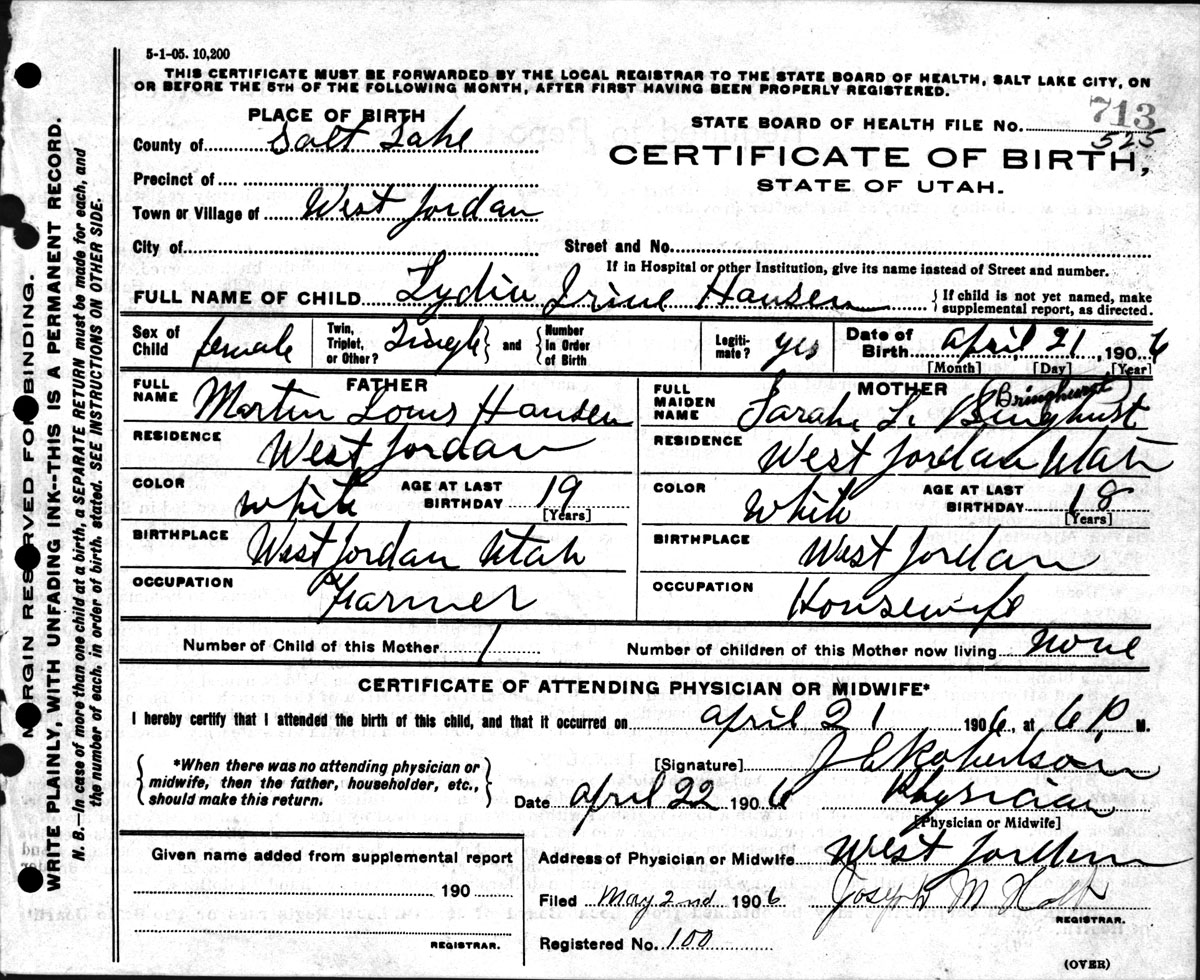 5-1-05. 10,200
THIS CERTIFICATE MUST BE FORWARDED BY THE LOCAL REGISTRAR TO THE STATE BOARD OF HEALTH, SALT LAKE CITY, ON
OR BEFORE THE 5TH OF THE FOLLOWING MONTH, AFTER FIRST HAVING BEEN PROPERLY REGISTERED.
PLACE OF BIRTH
County of Salt Lake
Precinct of
Town or Village of West Jordan
City of
STATE BOARD OF HEALTH FILE NO. 713
525
CERTIFICATE OF BIRTH,
STATE OF UTAH.
Street and No.
If in Hospital or other Institution, give its name instead of Street and number.
FULL NAME OF CHILD Lydia Irine Hansen { If child is not yet named, make supplemental report, as directed.
Sex of Child female Twin, Triplet, or Other? Single } and { Number In Order of Birth Legiti-mate? yes Date of Birth April, 21, 1906
[Month] [Day] [Year]
FATHER
FULL NAME Martin Louis Hansen
RESIDENCE West Jordan
COLOR white AGE AT LAST BIRTHDAY 19
[Years]
BIRTHPLACE West Jordan Utah
OCCUPATION Farmer
MOTHER
(Bringhurst)
FULL MAIDEN NAME Sarah L. Binghust
RESIDENCE West Jordan Utah
COLOR White AGE AT LAST BIRTHDAY 18
[Years]
BIRTHPLACE West Jordan
OCCUPATION Housewife
Number of Child of this Mother 1 Number of children of this Mother now living none
CERTIFICATE OF ATTENDING PHYSICIAN OR MIDWIFE*
I hereby certify that I attended the birth of this child, and that it occurred on April 21 1906, at 6 P. M.
{ *When there was no attending physician or
midwife, then the father, householder, etc.,
should make this return. }
[Signature] J E Robertson
Date April 22 1906 Physician
[Physician or Midwife]
Given name added from supplemental report
190
REGISTRAR.
Address of Physician or Midwife West Jordan
Filed May 2nd 1906 Joseph M Holt
REGISTRAR.
Registered No. 100
(OVER)
MARGIN RESERVED FOR BINDING.
WRITE PLAINLY, WITH UNFADING INK--THIS IS A PERMANENT RECORD.
N. B.—In case of more than one child at a birth, a SEPARATE RETURN must be made for each, and
the number of each, in order of birth, stated. SEE INSTRUCTIONS ON OTHER SIDE.